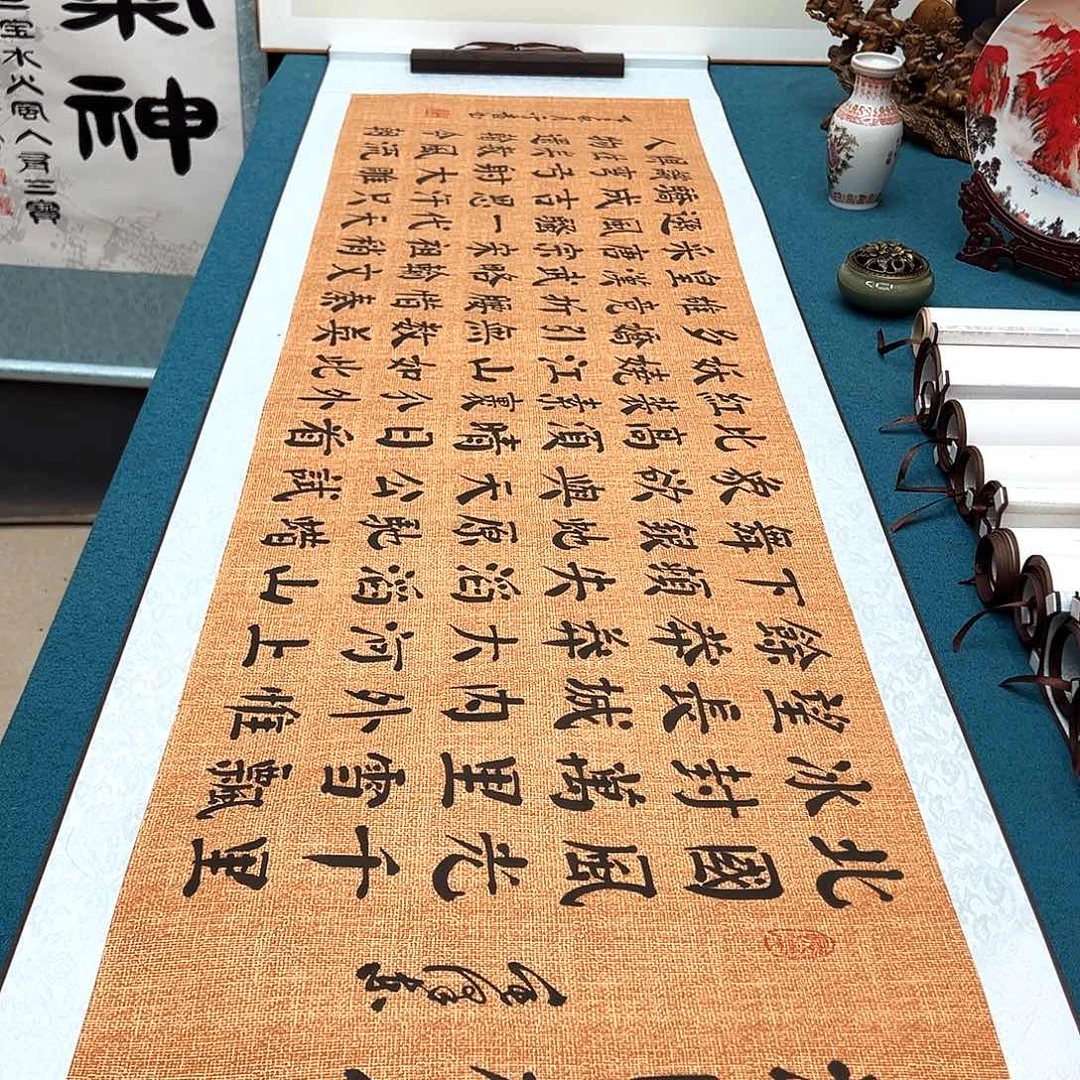 北國風光千里
冰封萬里雪飄
望長城內外惟
餘莽莽大河上
下頓失滔滔山
舞銀蛇原馳蜡
象欲與天公試
比高須晴日看
紅裝素裹分外
妖嬈江山如此
多嬌引無數英
雄競折腰惜秦
皇漢武略輸文
采唐宗宋祖稍
遜風騷一代天
驕成吉思汗只
識彎弓射大雕
俱往矣數風流
人物還看今朝
氣神
宝水火風人有三寶